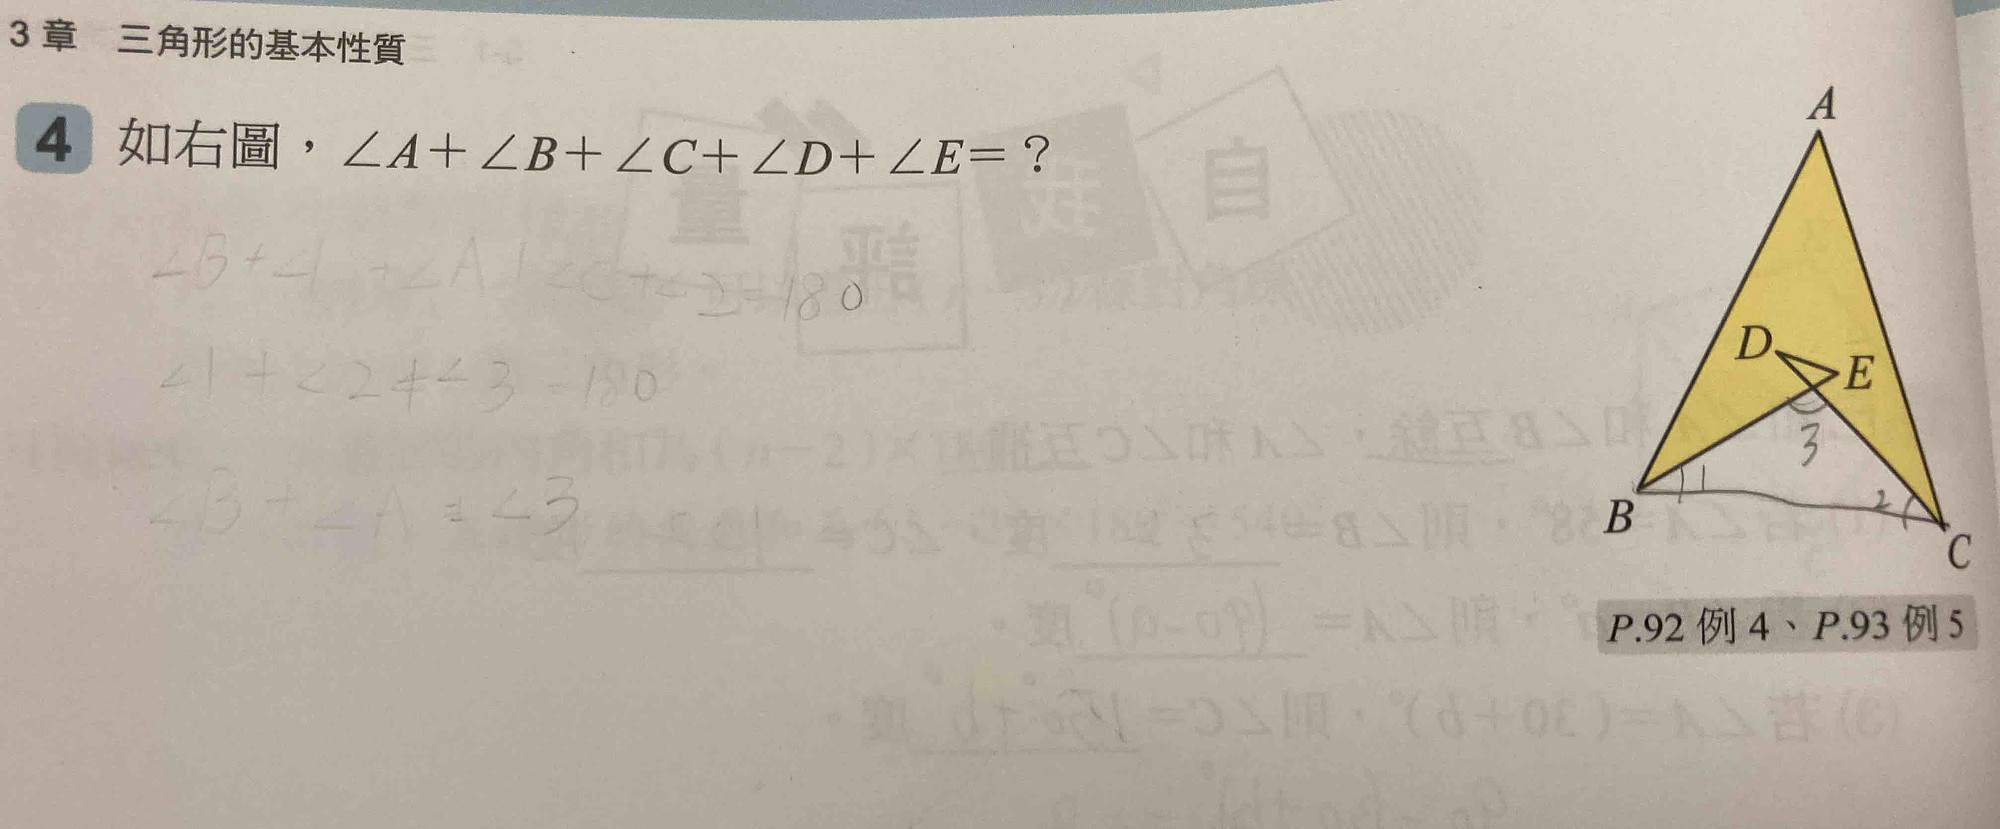 3 章 三角形的基本性質
4 如右圖，∠A＋∠B＋∠C＋∠D＋∠E＝？
∠B+∠1 +∠A+∠C+∠2=180
∠1+∠2+∠3=180
∠B+∠A=∠3
A
D
E
3
1
2
B
C
P.92 例 4、P.93 例 5